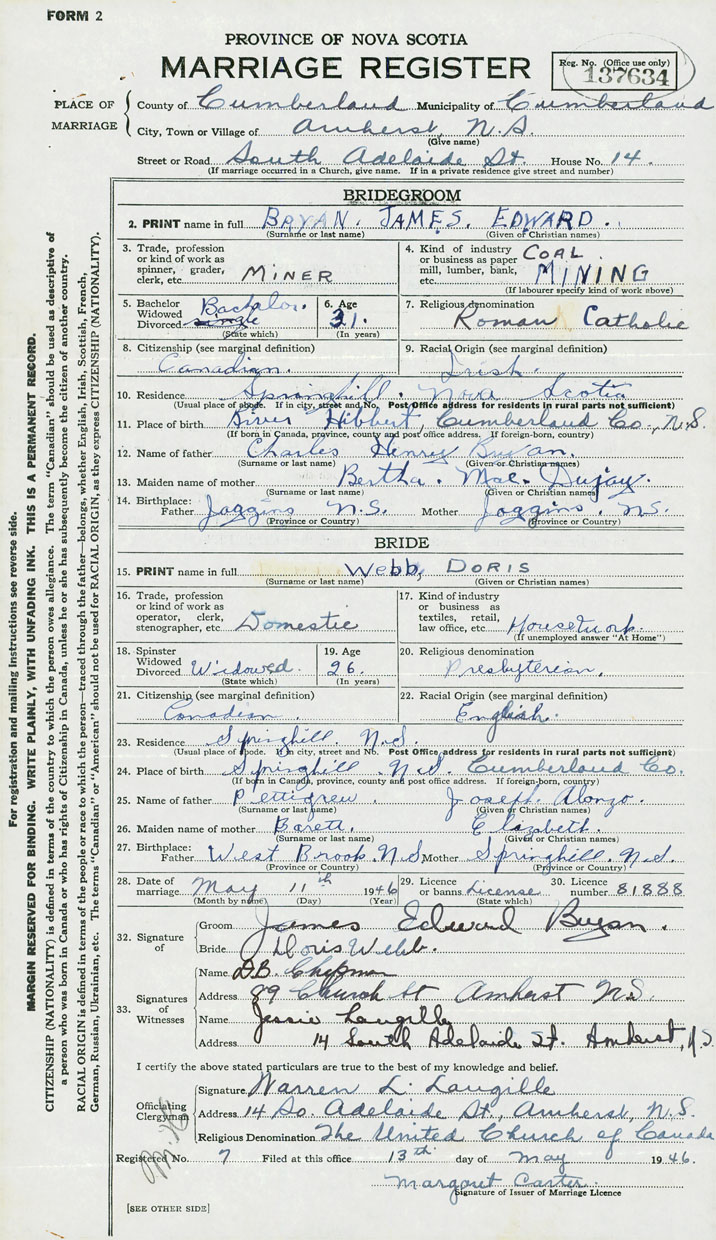 FORM 2
PROVINCE OF NOVA SCOTIA
MARRIAGE REGISTER
Reg. No. (Office use only)
137634
PLACE OF MARRIAGE
County of Cumberland Municipality of Cumberland
City, Town or Village of Amherst, N.S.
(Give name)
Street or Road South Adelaide St. House No. 14.
(If marriage occurred in a Church, give name. If in a private residence give street and number)
BRIDEGROOM
2. PRINT name in full BRYAN. JAMES. EDWARD.
(Surname or last name) (Given or Christian names)
3. Trade, profession or kind of work as spinner, grader, clerk, etc. MINER
4. Kind of industry or business as paper mill, lumber, bank, etc. COAL MINING
(If labourer specify kind of work above)
5. Bachelor Widowed Divorced Bachelor. single
(State which)
6. Age 31.
(In years)
7. Religious denomination Roman Catholic
8. Citizenship (see marginal definition) Canadian.
9. Racial Origin (see marginal definition) Irish.
10. Residence Springhill. Nova Scotia
(Usual place of abode. If in city, street and No. Post Office address for residents in rural parts not sufficient)
11. Place of birth River Hibbert, Cumberland Co., N.S.
(If born in Canada, province, county and post office address. If foreign-born, country)
12. Name of father Charles Henry Bryan.
(Surname or last name) (Given or Christian names)
13. Maiden name of mother Bertha. Mae.
(Surname or last name) (Given or Christian names)
14. Birthplace: Father Joggins N.S. Mother Joggins. N.S.
(Province or Country) (Province or Country)
BRIDE
15. PRINT name in full Webb, DORIS
(Surname or last name) (Given or Christian names)
16. Trade, profession or kind of work as operator, clerk, stenographer, etc. Domestic
17. Kind of industry or business as textiles, retail, law office, etc. Housework.
(If unemployed answer "At Home")
18. Spinster Widowed Divorced Widowed.
(State which)
19. Age 26.
(In years)
20. Religious denomination Presbyterian.
21. Citizenship (see marginal definition) Canadian.
22. Racial Origin (see marginal definition) English.
23. Residence Springhill. N.S.
(Usual place of abode. If in city, street and No. Post Office address for residents in rural parts not sufficient)
24. Place of birth Springhill. N.S. Cumberland Co.
(If born in Canada, province, county and post office address. If foreign-born, country)
25. Name of father Pettigrew. Joseph. Alonzo.
(Surname or last name) (Given or Christian names)
26. Maiden name of mother Barett. Elizabeth.
(Surname or last name) (Given or Christian names)
27. Birthplace: Father West Brook. N.S Mother Springhill. N.S.
(Province or Country) (Province or Country)
28. Date of marriage. May 11th 1946
(Month by name) (Day) (Year)
29. Licence or banns License
(State which)
30. Licence number 81888
32. Signature of
Groom James Edward Bryan.
Bride Doris Webb.
33. Signatures of Witnesses
Name D.B. Chapman
Address 89 Church St Amherst N.S.
Name Jessie Langille
Address 14 South Adelaide St. Amherst, N.S.
I certify the above stated particulars are true to the best of my knowledge and belief.
Officiating Clergyman
Signature Warren L. Langille
Address 14 So. Adelaide St., Amherst, N.S.
Religious Denomination The United Church of Canada
Registered No. 7 Filed at this office 13th day of May 1946.
Margaret Carter.
Signature of Issuer of Marriage Licence
[SEE OTHER SIDE]
For registration and mailing instructions see reverse side.
MARGIN RESERVED FOR BINDING. WRITE PLAINLY, WITH UNFADING INK. THIS IS A PERMANENT RECORD.
CITIZENSHIP (NATIONALITY) is defined in terms of the country to which the person owes allegiance. The term "Canadian" should be used as descriptive of
a person who was born in Canada or who has rights of Citizenship in Canada, unless he or she has subsequently become the citizen of another country.
RACIAL ORIGIN is defined in terms of the people or race to which the person—traced through the father—belongs, whether English, Irish, Scottish, French,
German, Russian, Ukrainian, etc. The terms "Canadian" or "American" should not be used for RACIAL ORIGIN, as they express CITIZENSHIP (NATIONALITY).